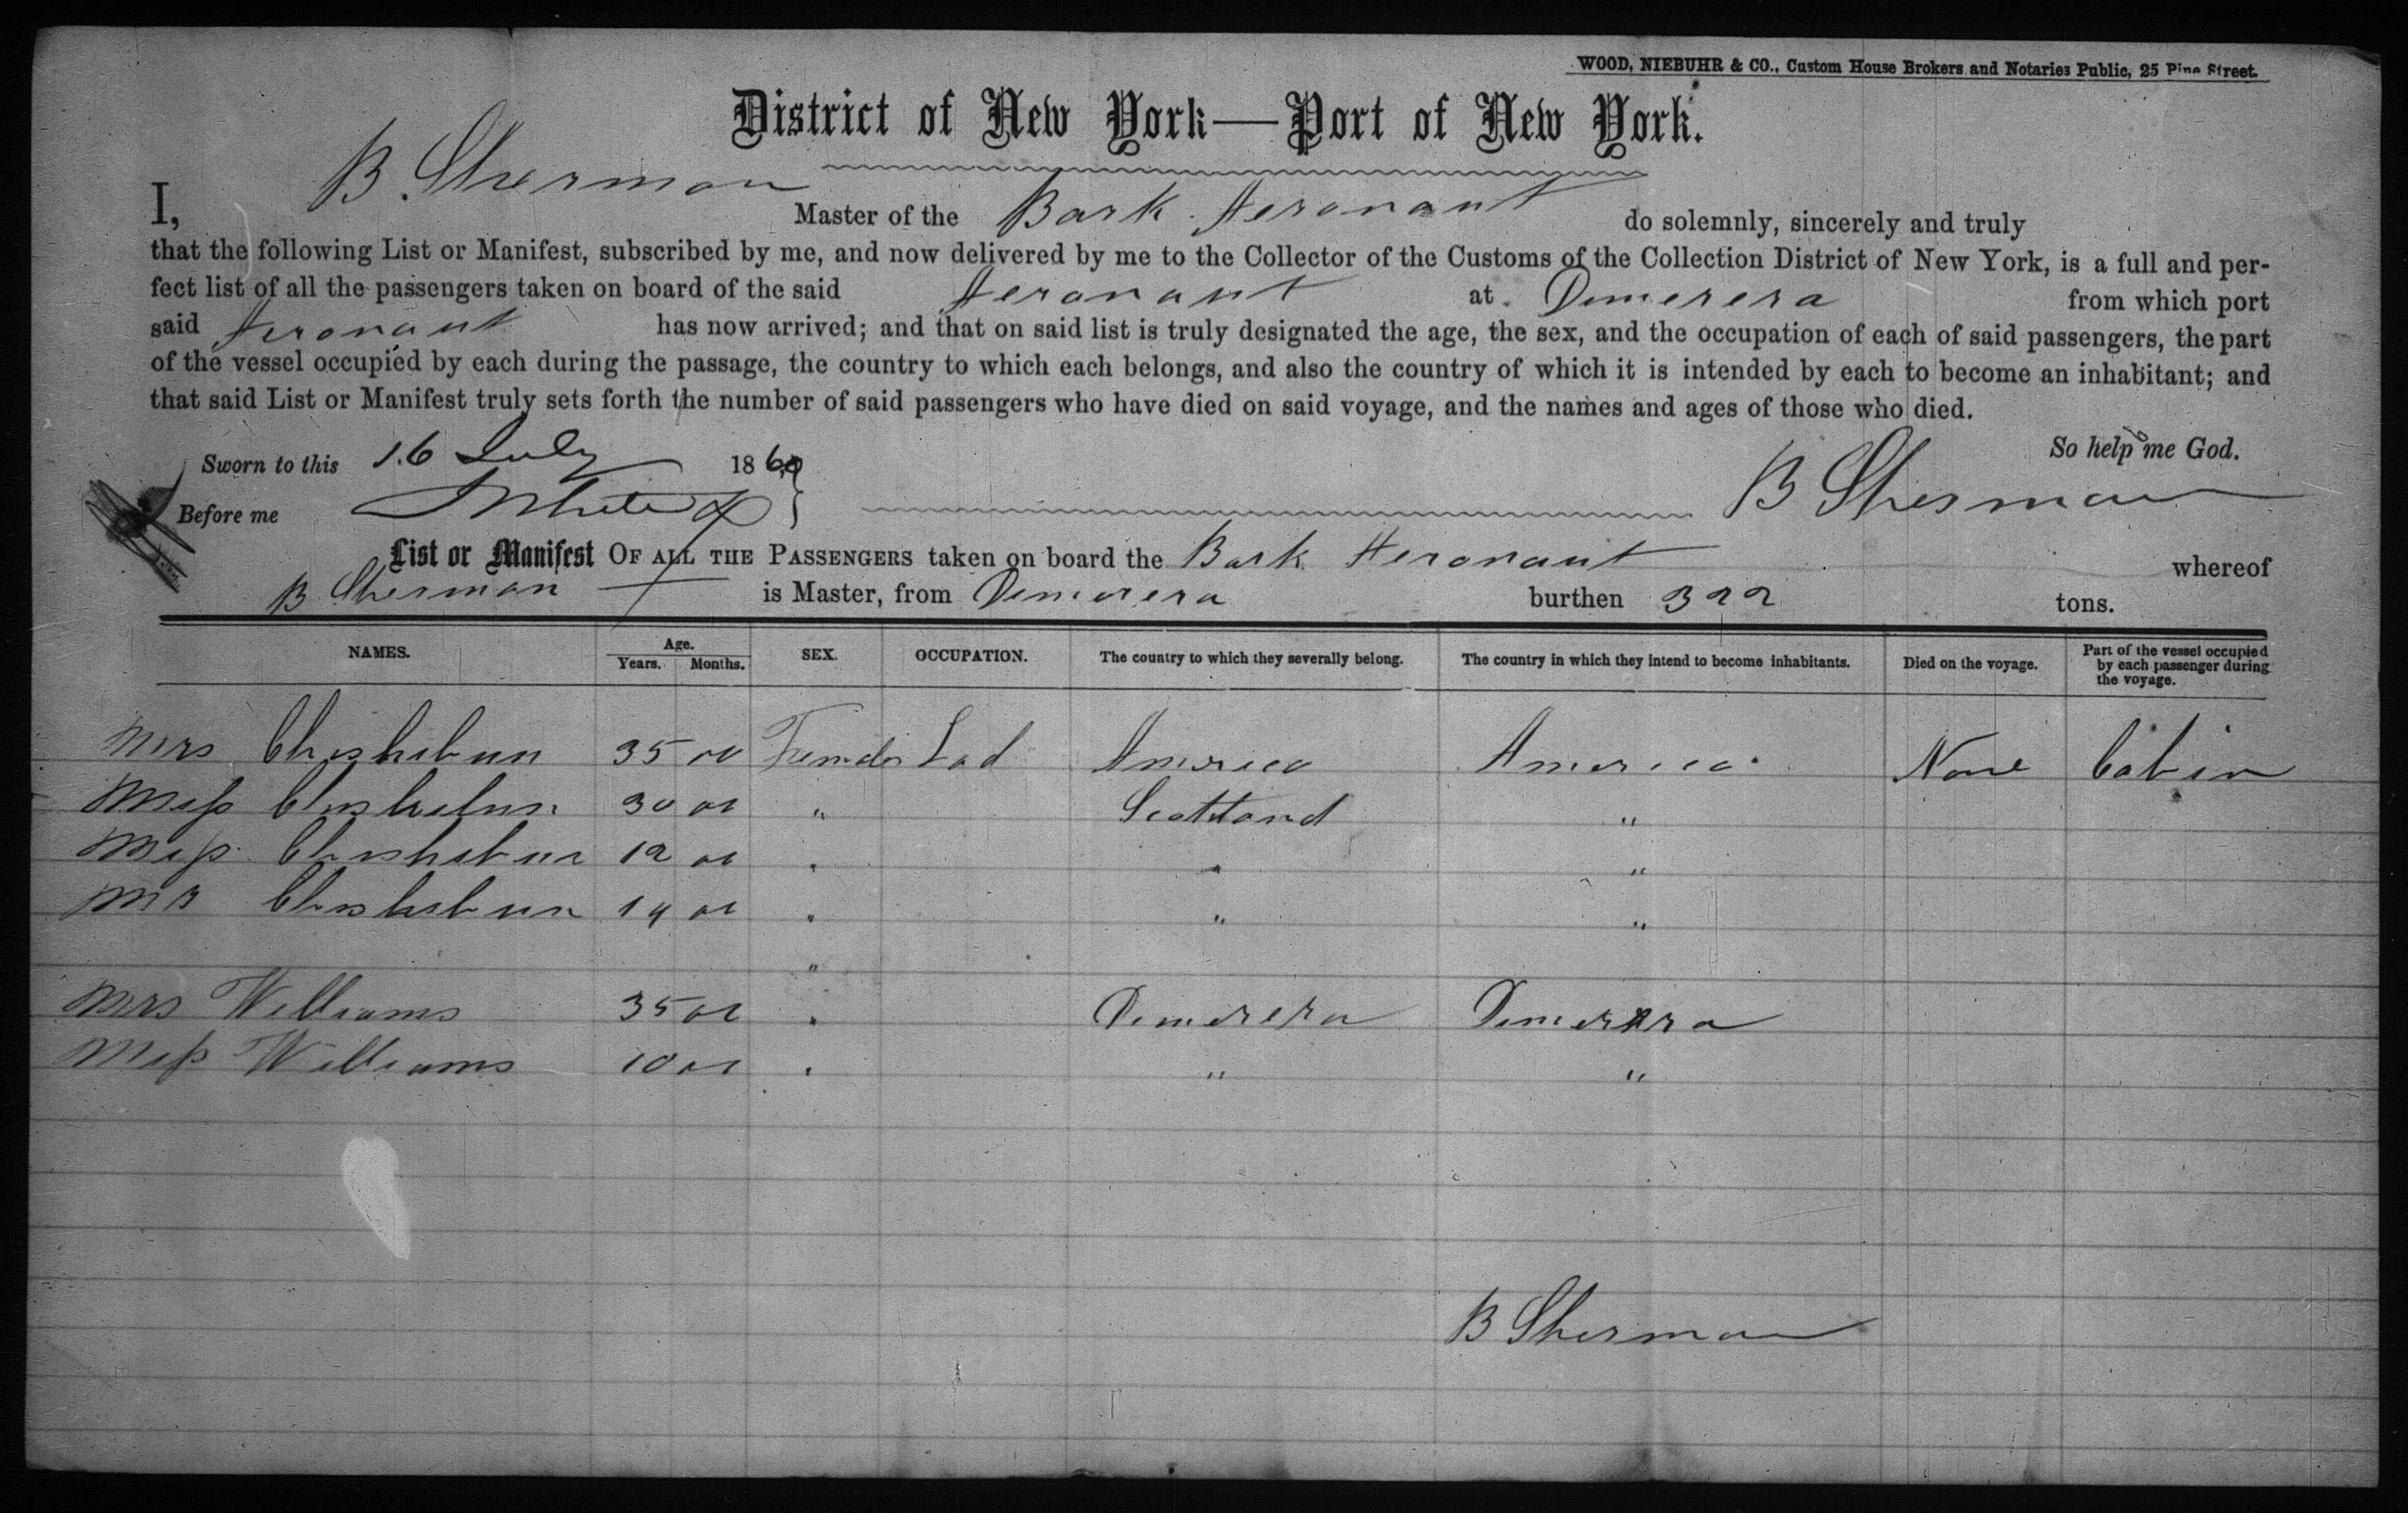 WOOD, NIEBUHR & CO., Custom House Brokers and Notaries Public, 25 Pine Street.
District of New York—Port of New York.
I, B. Sherman Master of the Bark Aeronaut do solemnly, sincerely and truly
that the following List or Manifest, subscribed by me, and now delivered by me to the Collector of the Customs of the Collection District of New York, is a full and per-
fect list of all the passengers taken on board of the said Aeronaut at Demerera from which port
said Aeronaut has now arrived; and that on said list is truly designated the age, the sex, and the occupation of each of said passengers, the part
of the vessel occupied by each during the passage, the country to which each belongs, and also the country of which it is intended by each to become an inhabitant; and
that said List or Manifest truly sets forth the number of said passengers who have died on said voyage, and the names and ages of those who died.
So help me God.
Sworn to this 16 July 1860
Before me B Sherman
List or Manifest OF ALL THE PASSENGERS taken on board the Bark Aeronaut whereof
B Sherman is Master, from Demerera burthen 322 tons.
NAMES. Age. Years. Months. SEX. OCCUPATION. The country to which they severally belong. The country in which they intend to become inhabitants. Died on the voyage. Part of the vessel occupied by each passenger during the voyage.
Mrs 35 Lad America America None Cabin
Miss 30 " Scottland "
Miss 12 " " "
14 " " "
"
Mrs Williams 35 " Demerera Demerera
Miss Williams 10 " " "
B Sherman